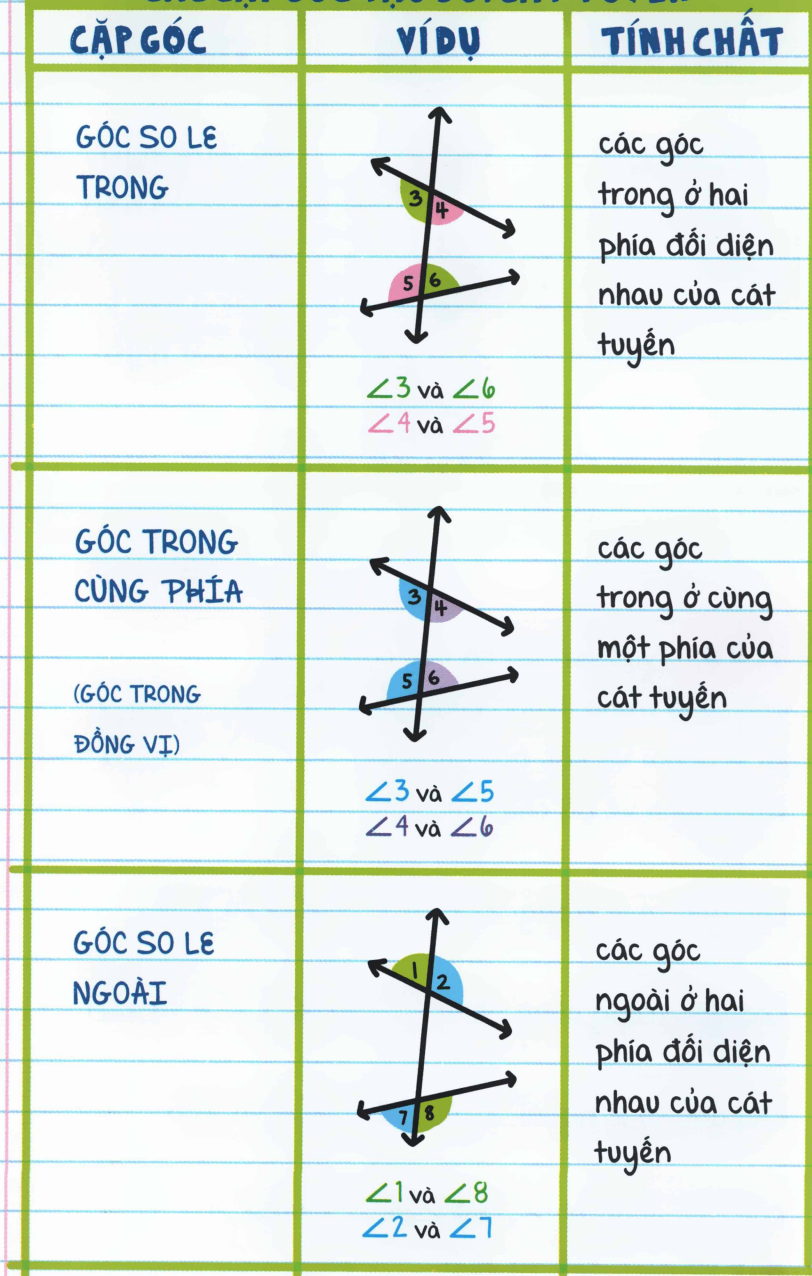 CẶP GÓC
VÍ DỤ
TÍNH CHẤT
GÓC SO LE
TRONG
3
4
5
6
∠3 và ∠6
∠4 và ∠5
các góc
trong ở hai
phía đối diện
nhau của cát
tuyến
GÓC TRONG
CÙNG PHÍA
(GÓC TRONG
ĐỒNG VỊ)
3
4
5
6
∠3 và ∠5
∠4 và ∠6
các góc
trong ở cùng
một phía của
cát tuyến
GÓC SO LE
NGOÀI
1
2
7
8
∠1 và ∠8
∠2 và ∠7
các góc
ngoài ở hai
phía đối diện
nhau của cát
tuyến